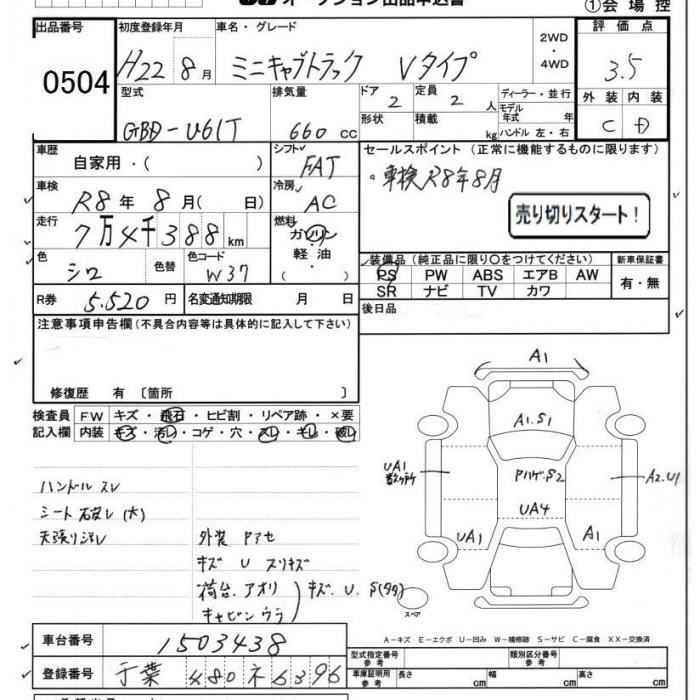 オークション出品申込書
①会場控
出品番号 初度登録年月 車名・グレード 評価点
0504 H22 8月 ミニキャブトラック Vタイプ 2WD・4WD 3.5
型式 排気量 ドア 2 定員 2人 ディーラー・並行 外装 内装
GBD-U61T 660cc 形状 積載 kg モデル年式 年 ハンドル 左・右 C D
車歴 自家用・( ) シフト FAT セールスポイント(正常に機能するものに限ります)
車検 R8年 8月( 日) 冷房 AC ・車検R8年8月
走行 7万4千388km 燃料 ガソリン・軽油・( ) 売り切りスタート!
色 シロ 色替 色コード W37 装備品(純正品に限り○をつけてください) 新車保証書
PS PW ABS エアB AW 有・無
SR ナビ TV カワ
R券 5,520円 名変通知期限 月 日 後日品
注意事項申告欄(不具合内容等は具体的に記入して下さい)
修復歴 有 〔箇所 〕
検査員 FW キズ・飛石・ヒビ割・リペア跡・×要
記入欄 内装 キズ・汚レ・コゲ・穴・スレ・キレ・破レ
A1
A1.S1
UA1
数ヶ所
Pハゲ.S2
A2.U1
UA4
UA1
A1
スペア
ハンドル スレ
シート 破レ(大)
天張り汚レ 外装 Pアセ
キズ U スリキズ
荷台.アオリ
キャビンウラ
) キズ.U.S(多々)
A-キズ E-エクボ U-凹み W-補修跡 S-サビ C-腐食 XX-交換済
車台番号 1503438 型式指定番号 参考 類別区分番号 参考
登録番号 千葉 480 ネ 6396 車庫証明用 参考 長さ cm 幅 cm 高さ cm